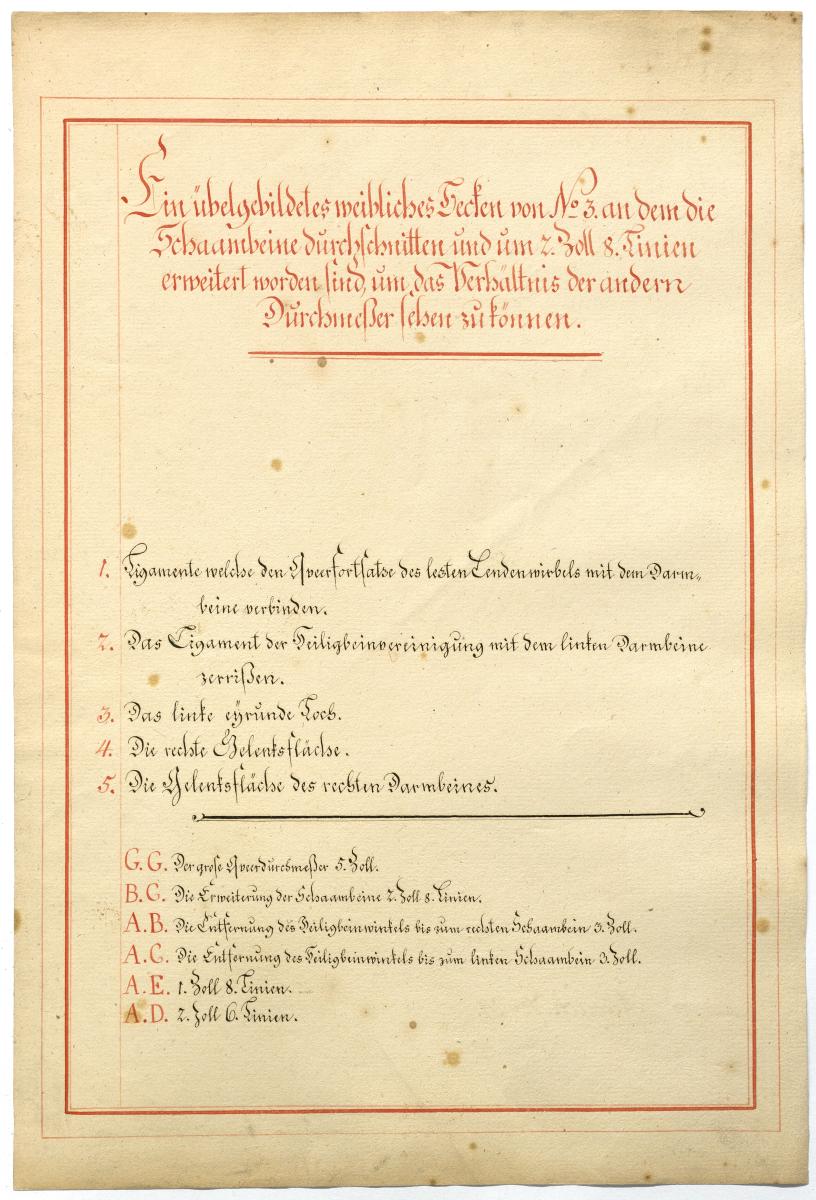 Ein übelgebildetes weibliches Becken von No 3. an dem die
Schaambeine durchschnitten und um 2. Zoll 8. Linien
erweitert worden sind, um das Verhältnis der andern
Durchmeßer sehen zu können.
1. Ligamente welche den Queerfortsatse des lesten Lendenwirbels mit dem Darm-
beine verbinden.
2. Das Ligament der Heiligbeinvereinigung mit dem linken Darmbeine
zerrißen.
3. Das linke eÿrunde Loch.
4. Die rechte Gelenksfläche.
5. Die Gelenksfläche des rechten Darmbeines.
G. G. Der grose Queerdurchmeßer 5. Zoll.
B. C. Die Erweiterung der Schaambeine 2. Zoll 8. Linien.
A. B. Die Entfernung des Heiligbeinwinkels bis zum rechten Schaambein 3. Zoll.
A. C. Die Entfernung des Heiligbeinwinkels bis zum linken Schaambein 3. Zoll.
A. E. 1. Zoll 8. Linien.
A. D. 2. Zoll 6. Linien.